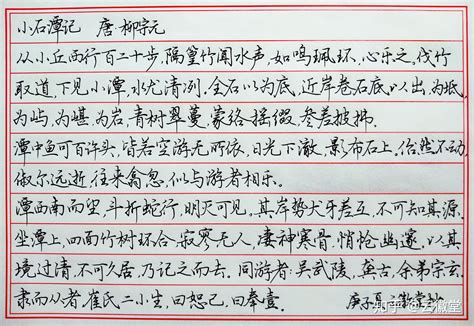 小石潭记 唐·柳宗元
从小丘西行百二十步，隔篁竹闻水声，如鸣珮环，心乐之，伐竹
取道，下见小潭，水尤清冽。全石以为底，近岸卷石底以出，为坻、
为屿、为嵁、为岩，青树翠蔓，蒙络摇缀，参差披拂。
潭中鱼可百许头，皆若空游无所依，日光下澈，影布石上。佁然不动，
俶尔远逝，往来翕忽，似与游者相乐。
潭西南而望，斗折蛇行，明灭可见。其岸势犬牙差互，不可知其源。
坐潭上，四面竹树环合，寂寥无人，凄神寒骨，悄怆幽邃。以其
境过清，不可久居，乃记之而去。同游者：吴武陵，龚古，余弟宗玄，
隶而从者，崔氏二小生，曰恕己，曰奉壹。
知乎 @云徽堂